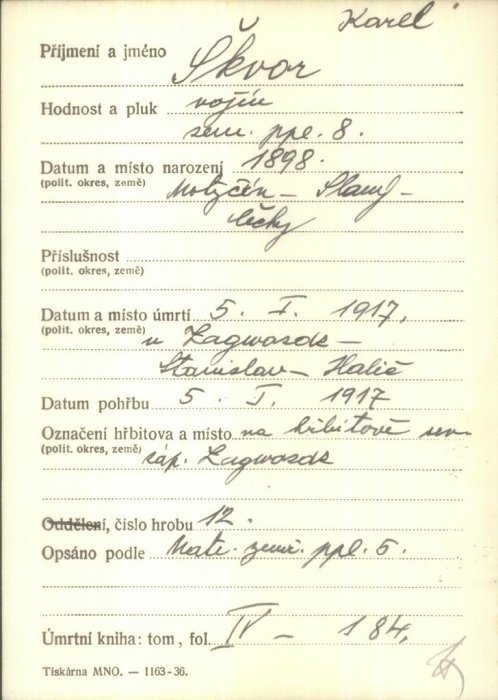 Karel
Příjmení a jméno Škvor
Hodnost a pluk vojín
zem. ppl. 8.
Datum a místo narození 1898.
(polit. okres, země) Motyčín – Slaný –
čechy
Příslušnost
(polit. okres, země)
Datum a místo úmrtí 5. I. 1917,
(polit. okres, země) u Zagwozdz –
Stanislav – Halič
Datum pohřbu 5. I. 1917
Označení hřbitova a místo na hřbitově sev.
(polit. okres, země) záp. Zagwozdz
Oddělení, číslo hrobu 12.
Opsáno podle Matr. zemř. ppl. 5.
Úmrtní kniha: tom, fol. IV – 184,
Tiskárna MNO. — 1163-36.